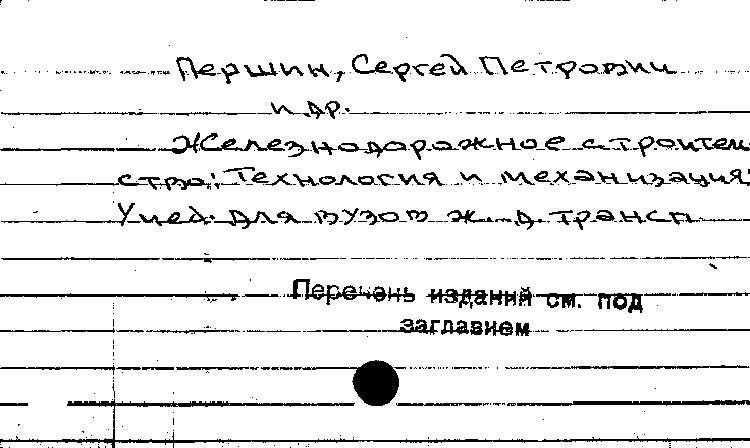 Першин, Сергей Петрович
и др.
Железнодорожное строитель
ство: Технология и механизация:
Учеб. для вузов ж.-д. трансп
Перечень изданий см. под
заглавием